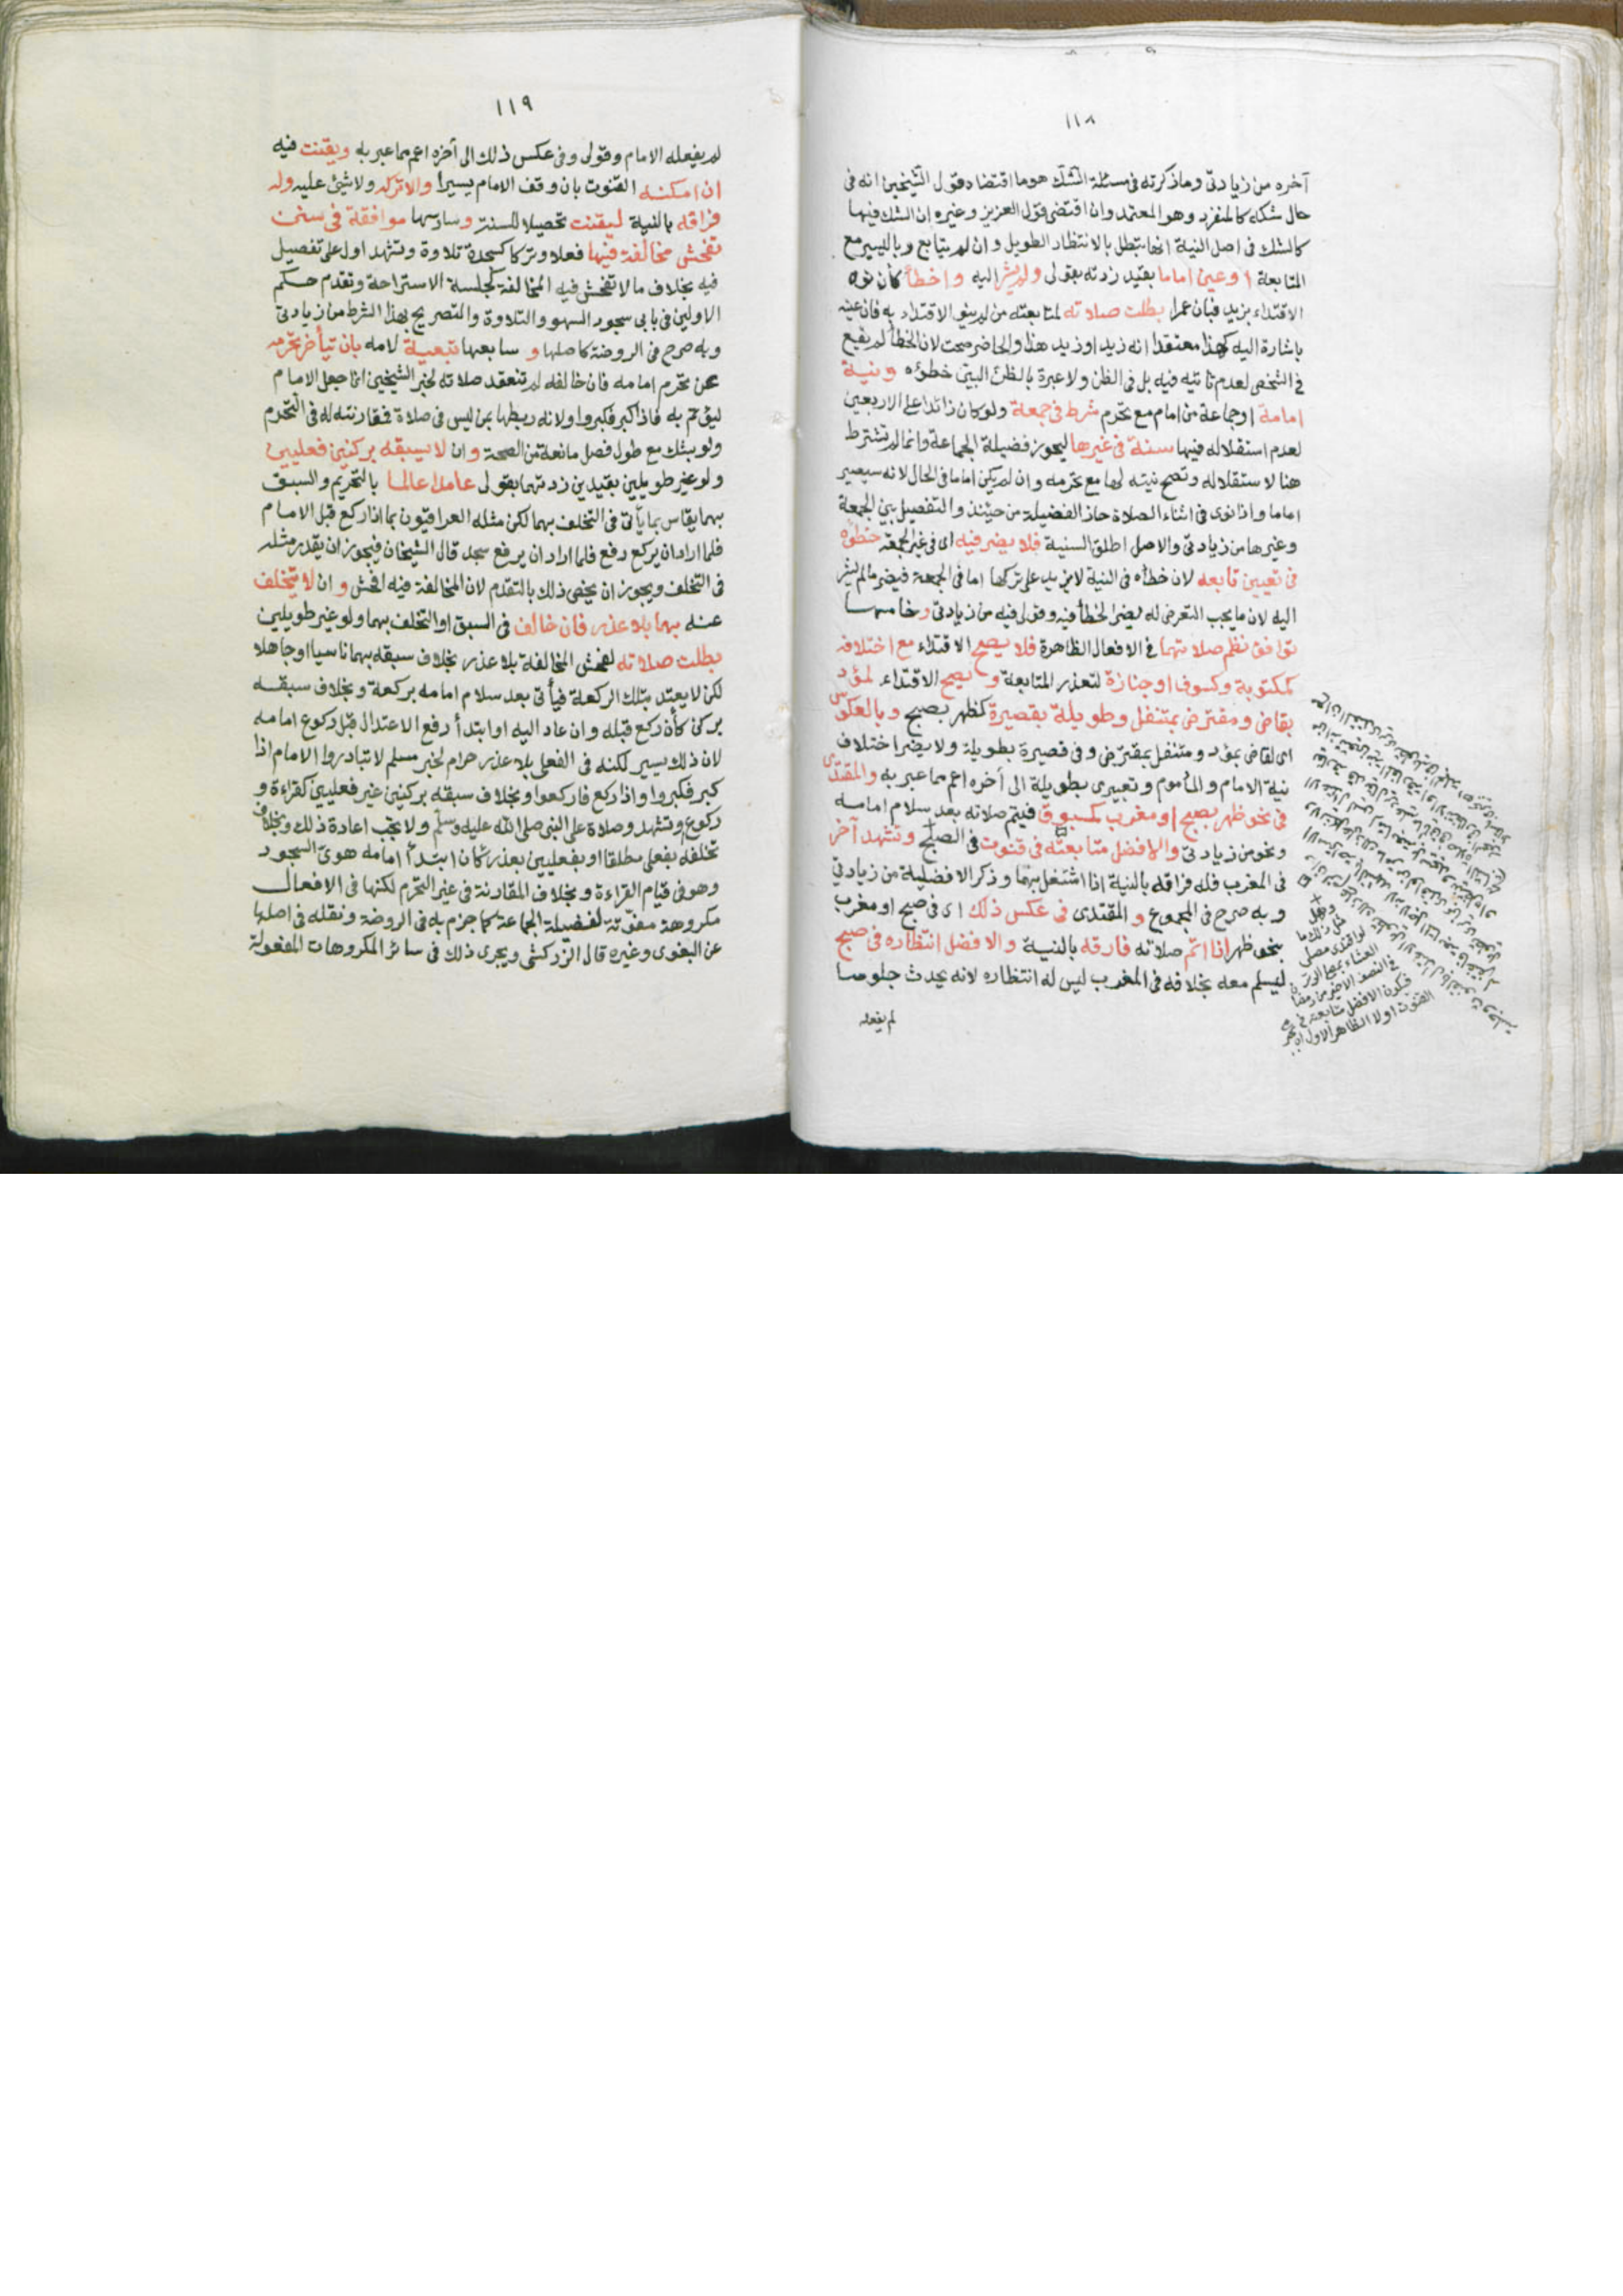 ١١٨
آخره من زيادتى وما ذكرته فى مسئلة الشك هو ما اقتضاه قول الشيخين انه فى
حال شكه كالمنفرد وهو المعتمد وان اقتضى قول العزيز وغيره ان الشك فيها
كالشك فى اصل النية انها تبطل بالانتظار الطويل وان لم يتابع وباليسير مع
المتابعة او عين اماما بقيد زدته بقولى ولم يشر اليه واخطأ كأن نوى
الاقتداء بزيد فبان عمرا بطلت صلاته لمتابعته من لم ينو الاقتداء به فان عينه
باشارة اليه كهذا معتقدا انه زيد او زيد هذا والحاضر صحت لان الخطأ لم يقع
فى الشخص لعدم تأتيه فيه بل فى الظن ولا عبرة بالظن البين خطؤه ونية
امامة او جماعة من امام مع تحرم شرط فى جمعة ولو كان زائدا على الاربعين
لعدم استقلاله فيها سنة فى غيرها ليحوز فضيلة الجماعة وانما لم تشترط
هنا لاستقلاله وتصح نيته لها مع تحرمه وان لم يكن اماما فى الحال لانه سيصير
اماما واذا نوى فى اثناء الصلاة حاز الفضيلة من حينئذ والتفصيل بين الجمعة
وغيرها من زيادتى والاصل اطلق السنية فلا يضر فيه اى فى غير الجمعة خطؤه
فى تعيين تابعه لان خطأه فى النية لا يزيد على تركها اما فى الجمعة فيضر ما لم يشر
اليه لان ما يجب التعرض له يضر الخطأ فيه وقولى فيه من زيادتى وخامسها
توافق نظم صلاتهما فى الافعال الظاهرة فلا يصح الاقتداء مع اختلافه
كمكتوبة وكسوف او جنازة لتعذر المتابعة ويصح الاقتداء لمؤد
بقاض ومفترض بمتنفل وطويلة بقصيرة كظهر بصبح وبالعكوس
اى لقاض بمؤد ومتنفل بمفترض وفى قصيرة بطويلة ولا يضر اختلاف
نية الامام والمأموم وتعبيرى بطويلة الى آخره اعم مما عبر به والمقتدى
فى نحو ظهر بصبح او مغرب كمسبوق فيتم صلاته بعد سلام امامه
ونحو من زيادتى والافضل متابعته فى قنوت فى الصبح وتشهد آخر
فى المغرب فله فراقه بالنية اذا اشتغل بهما وذكر الافضلية من زيادتى
وبه صرح فى المجموع و المقتدى فى عكس ذلك اى فى صبح او مغرب
بنحو ظهر اذا اتم صلاته فارقه بالنية والافضل انتظاره فى صبح
ليسلم معه بخلافه فى المغرب ليس له انتظاره لانه يحدث جلوسا
لم يفعله
وهل
مثل ذلك ما
لو اقتدى مصلى
العشاء بمصلى الوتر
فى النصف الاخير من رمضان
فيكون الافضل متابعته فى
القنوت اولا الظاهر الاول
١١٩
لم يفعله الامام وقولى وفى عكس ذلك الى آخره اعم مما عبر به ويقنت فيه
ان امكنه القنوت بان وقف الامام يسيرا والا تركه ولا شئ عليه وله
فراقه بالنية ليقنت تحصيلا للسنة وسادسها موافقة فى سنن
تفحش مخالفة فيها فعلا وتركا كسجدة تلاوة وتشهد اول على تفصيل
فيه بخلاف ما لا تفحش فيه المخالفة كجلسة الاستراحة وتقدم حكم
الاولين فى بابى سجود السهو والتلاوة والتصريح بهذا الشرط من زيادتى
وبه صرح فى الروضة كاصلها و سابعها تبعية لامه بان يتأخر تحرمه
عن تحرم امامه فان خالفه لم تنعقد صلاته لخبر الشيخين انما جعل الامام
ليؤتم به فاذا كبر فكبروا ولانه ربطها بمن ليس فى صلاة فمقارنته له فى التحرم
ولو بشك مع طول فصل مانعة من الصحة وان لا يسبقه بركنين فعليين
ولو غير طويلين بقيدين زدتهما بقولى عامدا عالما بالتحريم والسبق
بهما يقاس بما يأتى فى التخلف بهما لكن مثله العراقيون بما اذا ركع قبل الامام
فلما اراد ان يركع رفع فلما اراد ان يرفع سجد قال الشيخان فيجوز ان يقدر مثله
فى التخلف ويجوز ان يخص ذلك بالتقدم لان المخالفة فيه افحش وان لا يتخلف
عنه بهما بلا عذر فان خالف فى السبق او التخلف بهما ولو غير طويلين
بطلت صلاته لفحش المخالفة بلا عذر بخلاف سبقه بهما ناسيا او جاهلا
لكن لا يعتد بتلك الركعة فيأتى بعد سلام امامه بركعة وبخلاف سبقه
بركن كأن ركع قبله وان عاد اليه او ابتدأ رفع الاعتدال قبل ركوع امامه
لان ذلك يسير لكنه فى الفعلى بلا عذر حرام لخبر مسلم لا تبادروا الامام اذا
كبر فكبروا واذا ركع فاركعوا وبخلاف سبقه بركنين غير فعليين كقراءة و
ركوع وتشهد وصلاة على النبى صلى الله عليه وسلم ولا يجب اعادة ذلك وبخلاف
تخلفه بفعلى مطلقا او بفعليين بعذر كأن ابتدأ امامه هوى السجود
وهو فى قيام القراءة وبخلاف المقارنة فى غير التحرم لكنها فى الافعال
مكروهة مفوتة لفضيلة الجماعة كما جزم به فى الروضة ونقله فى اصلها
عن البغوى وغيره قال الزركشى ويجرى ذلك فى سائر المكروهات المفعولة